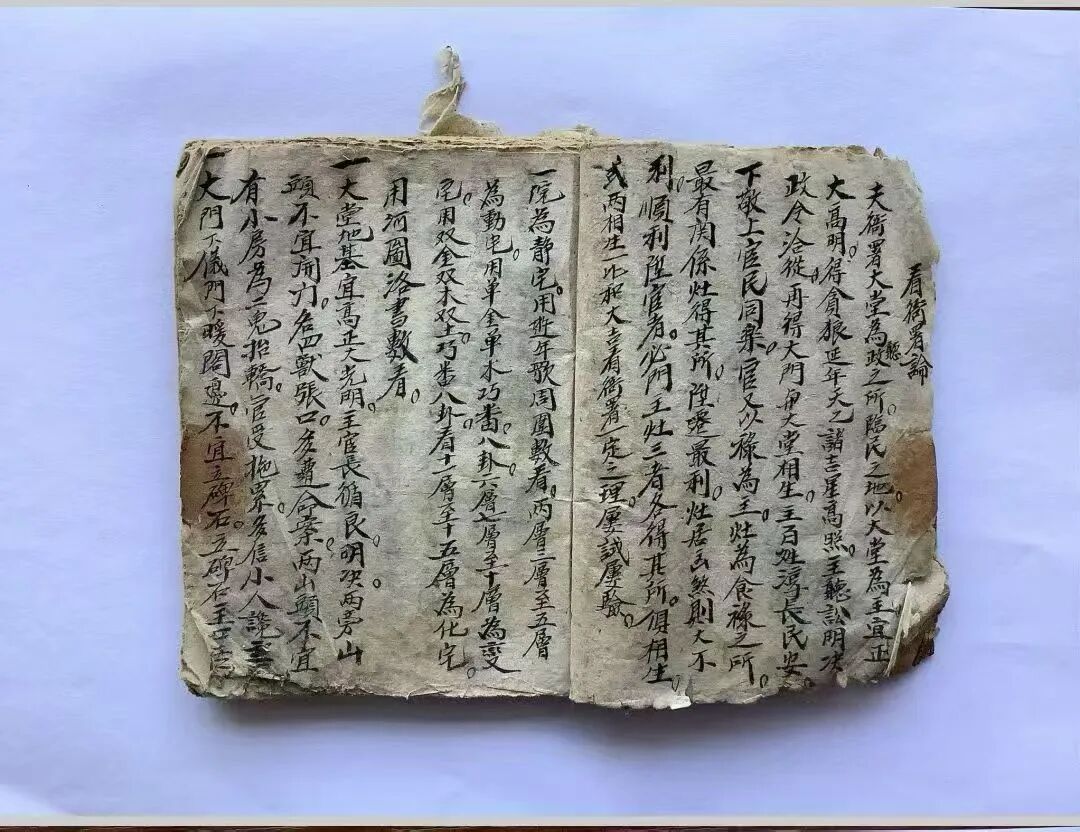 看衙署論
夫衙署大堂為聽政之所臨民之地。以大堂為主宜正
大高明。得貪狼延年天乙諸吉星高照。主聽訟明决
政令洽從。再得大門與大堂相生。主百姓馮長民安。
下敬上官民同楽。官又以祿為王。灶為食祿之所。
最有関係灶得其所。陞遷最利。灶居凶煞則大不
利。順利陞官者。必門主灶三者各得其所。俱相生。
或兩相生一比和大吉看衙署一定之理屢試屢驗。
一院為靜宅。用廵年歌周圍數看。两層三層至五層
為動宅。用单金单木巧番八卦。六層七層至十層為變
宅。用双金双木双土巧番八卦看十一層至十五層為化宅。
用河圖洛書數看。
一大堂地基宜高正大光明。主官長循良明决。两旁山
頭不宜開门。名四獸張口。多遭命案。两山頭不宜
有小房為二鬼抬轎。官受拖累。多信小人讒言
一大門下儀門下暖閣邊。不宜立碑石。立碑石主